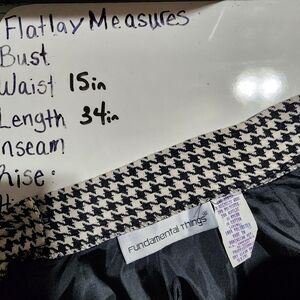 Flatlay Measures
Bust
Waist 15in
Length 34in
nseam
Rise:
Fundamental Things